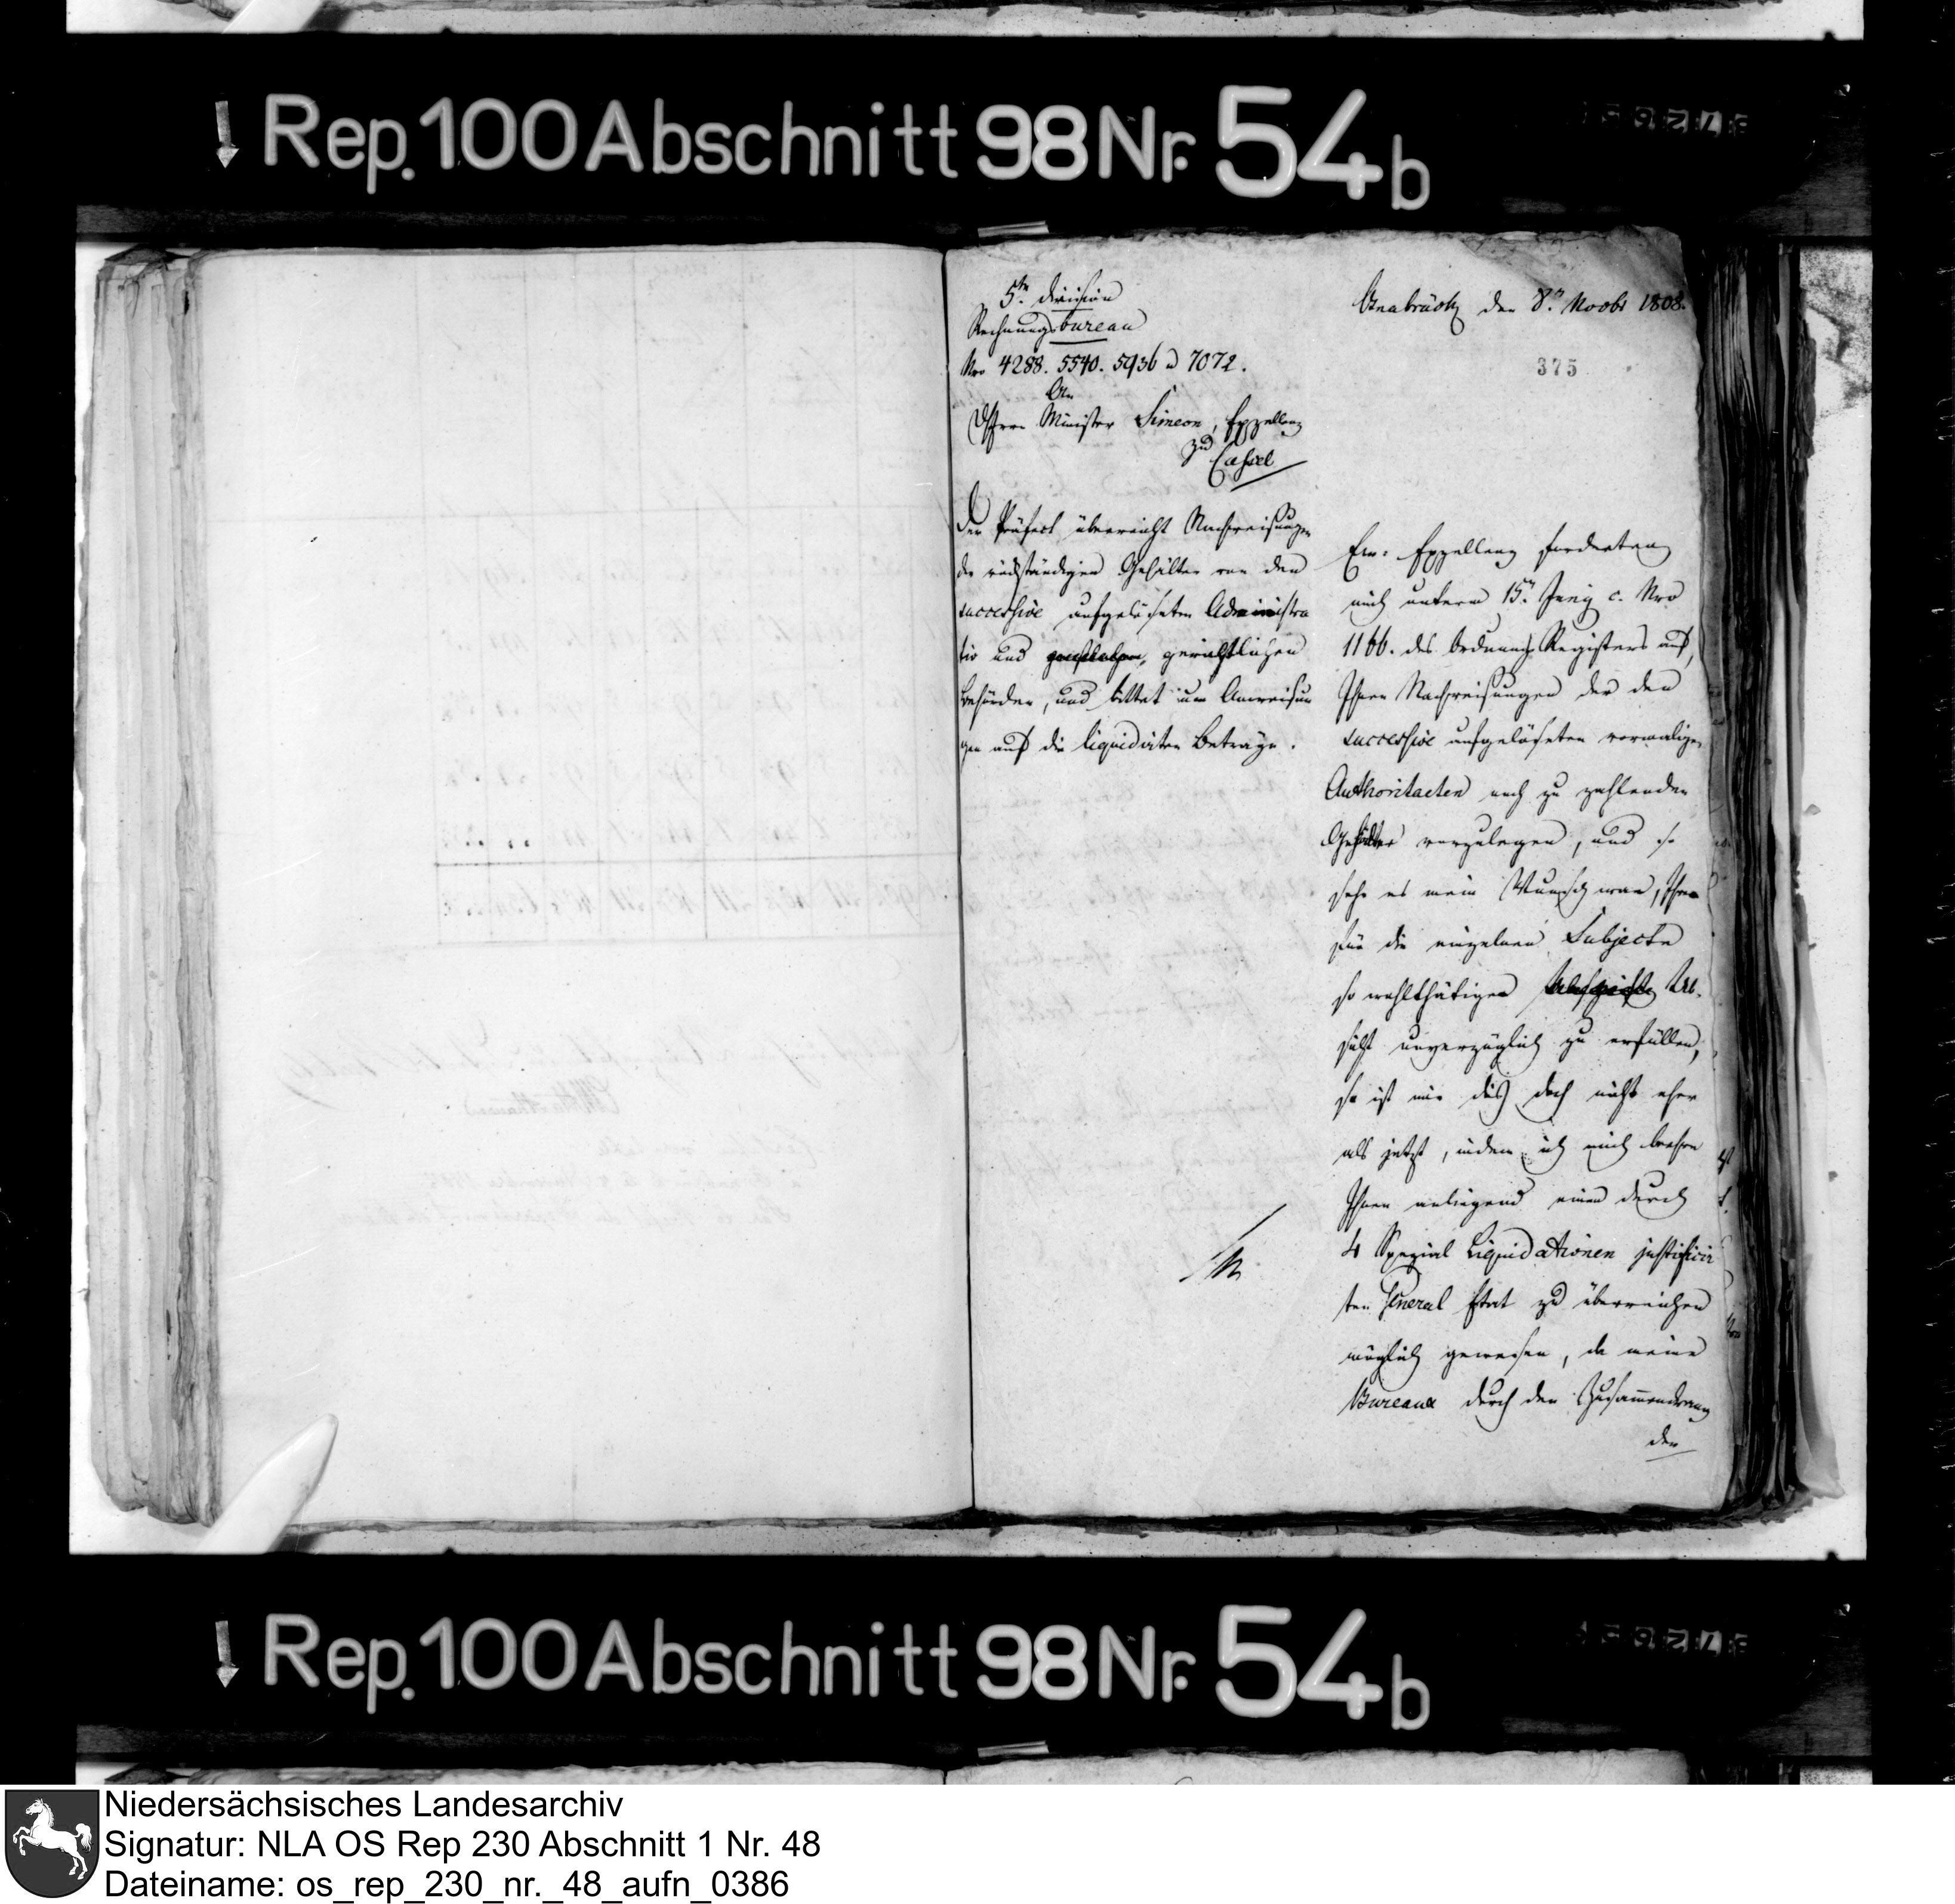 Rep. 100 Abschnitt 98 Nr. 54b
5te division
Rechnungsbureau
Nro 4288. 5540. 5936 u 7072.
An
Minister Simeon, Exzellenz
zu
Cassel
Der Präfect überreicht Nachweisungen
der rückständigen Gehälter von den
successive aufgelöseten Administra
tiv und gerichtlichen
Behörden, und bittet um Anweisun
gen auf die liquidirten Beträge.
Osnabrück den 8n Novbr 1808.
375
Ew: Exzellenz forderten
mich unterm 15n Juny c. Nro
1166. des Ordnungs Registers auf,
Ihnen Nachweisungen der den
successive aufgelöseten vormaligen
Authoritaeten noch zu zahlenden
Gehälter vorzulegen, und so
sehr es mein Wunsch war, Ihre
für die einzelnen Subjecte
so wohlthätigen Ab,
sicht unverzüglich zu erfüllen,
so ist mir dies doch nicht eher
als jetzt, indem ich mich beehre
Ihnen anliegend einen durch
4 Spezial Liquidationen justificir
ten General Etat zu überreichen
möglich gewesen, da meine
Bureaux durch den Zusammendrang
der
Rep. 100 Abschnitt 98 Nr. 54b
Niedersächsisches Landesarchiv
Signatur: NLA OS Rep 230 Abschnitt 1 Nr. 48
Dateiname: os_rep_230_nr._48_aufn_0386